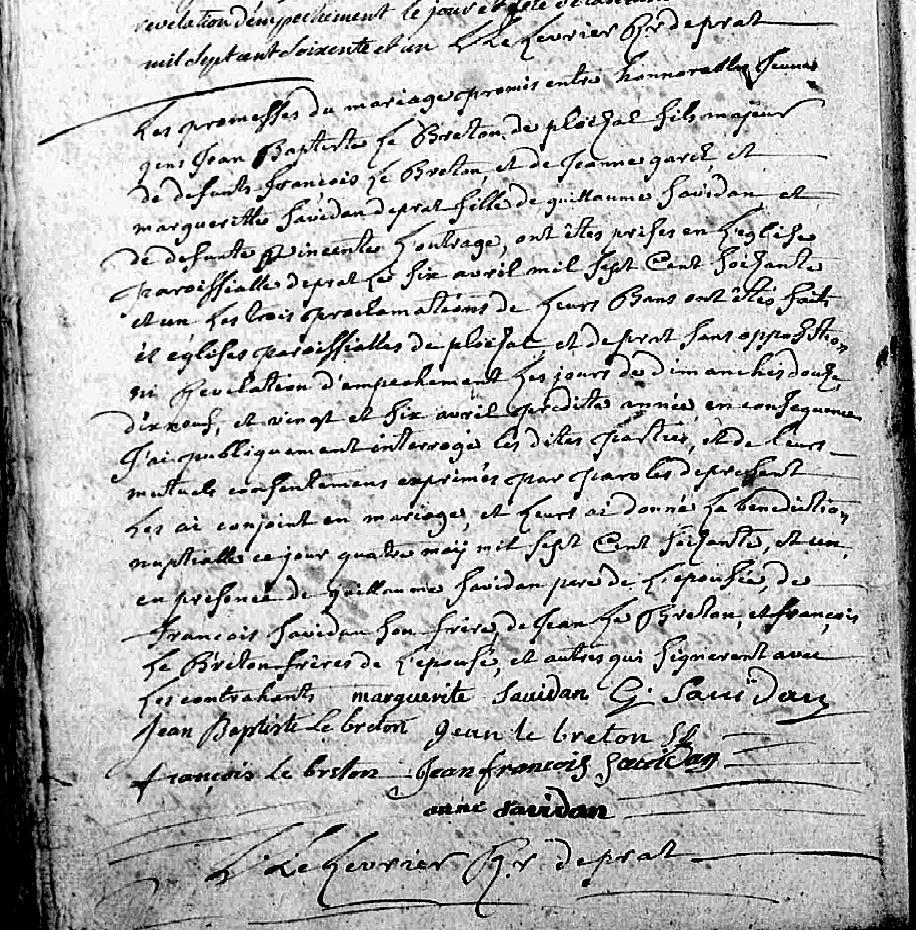 revelation d'empechement le jour et
mil sept cent soixente et un L Le Levrier Rr de prat
Les promesses du mariage promis entre honnorables Jeunes
gens Jean Baptiste Le Breton de ploëzal fils majeur
de defunts françois Le Breton, et de Jeanne et
margueritte Savidan de prat fille de guillaume Savidan et
de defunte vincente Loutrage, ont êtes prises en L'eglise
paroissialle de prat Le six avril mil sept Cent soixante
et un Les trois proclamations de Leurs Bans ont êtés faits
és églises paroissialles de ploëzal et de prat sans oppozition
ni Revelation d'empechement Les jours de dimanches douze,
dix neuf, et vingt et six avril predite année, en consequence
J'ai publiquement interrogé les dites parties, et de leurs
mutuels consentemens exprimés par paroles de present
Les ai conjoint en mariage, et Leurs ai donné La benediction
nuptialle ce jour quatre maÿ mil sept Cent soixante, et un,
en presence de guillaume Savidan pere de L'epousée, de
francois Savidan son frere, de Jean Le Breton, et françois
Le Breton freres de L'epousé, et autres qui signerent avec
Les contrahants marguerite Sauidan G. Sauidan
Jean Baptiste Le breton Jean le breton
françois le breton Jean francois Sauidan
anne Sauidan
L. Le Levrier Rr. de prat